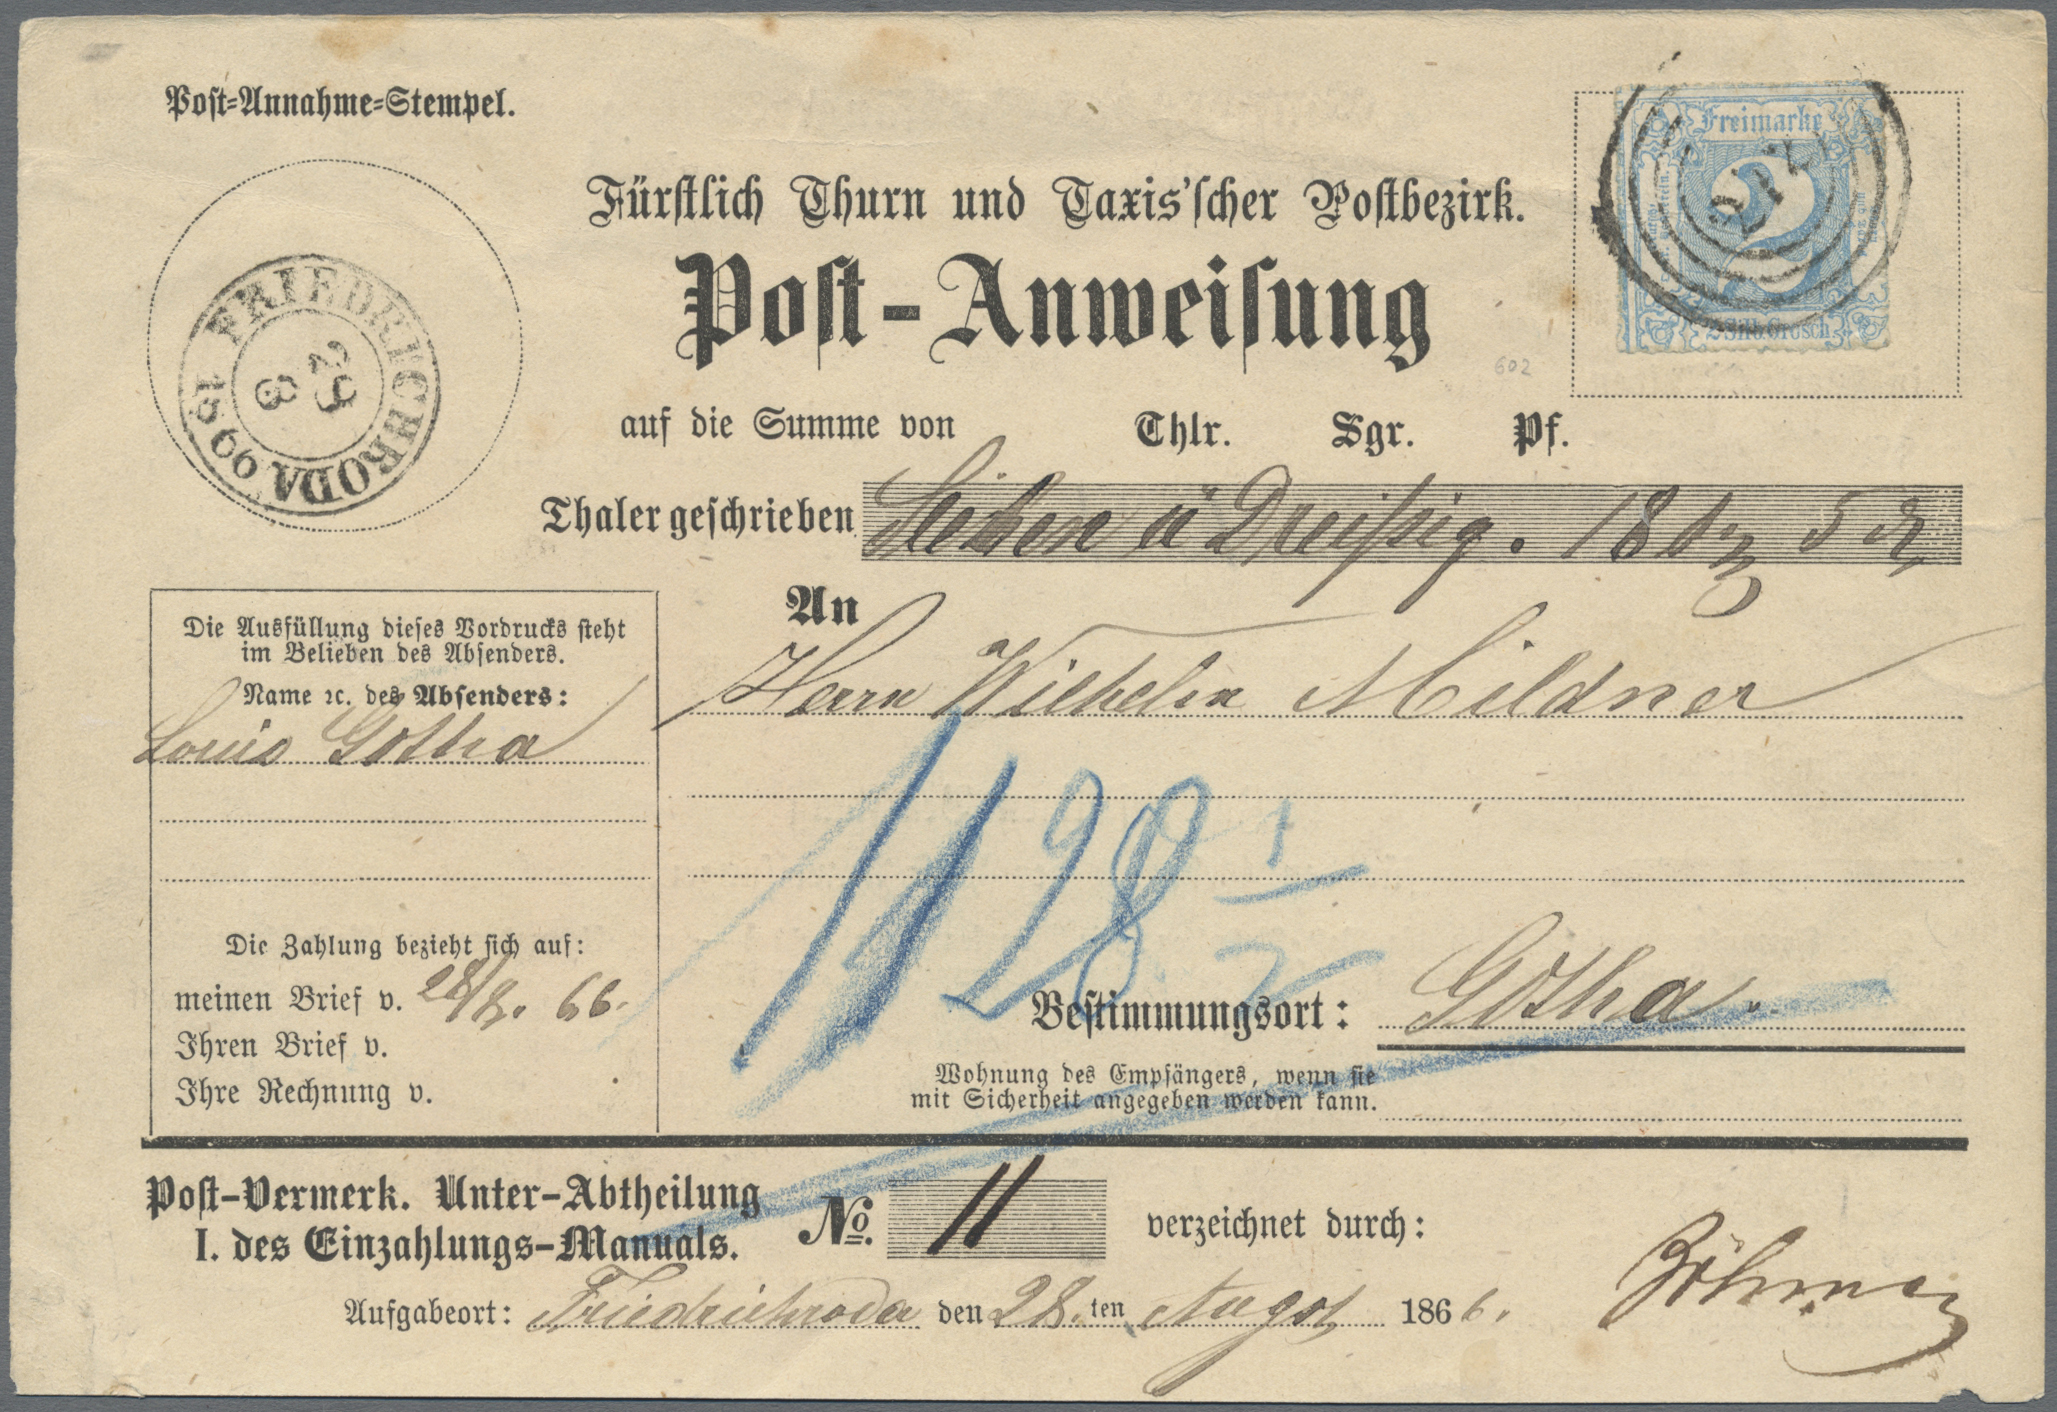 Post-Annahme-Stempel.
FRIEDRICHRODA
29
8
1866
Fürstlich Thurn und Taxis'scher Postbezirk.
Post-Anweisung
Freimarke
2
2 Silb. Grosch.
212
602
auf die Summe von Thlr. Sgr. Pf.
Thaler geschrieben Sieben u Dreißig. 18 5
An
Herrn Wilhelm Mildner
Die Ausfüllung dieses Vordrucks steht
im Belieben des Absenders.
Name ꝛc. des Absenders:
Louis Gotha
1128 1/2
Die Zahlung bezieht sich auf:
meinen Brief v. 28/8. 66.
Ihren Brief v.
Ihre Rechnung v.
Bestimmungsort: Gotha.
Wohnung des Empfängers, wenn sie
mit Sicherheit angegeben werden kann.
Post-Vermerk. Unter-Abtheilung
I. des Einzahlungs-Manuals.
No. 11 verzeichnet durch:
Aufgabeort: Friedrichroda den 28.ten August 1866.